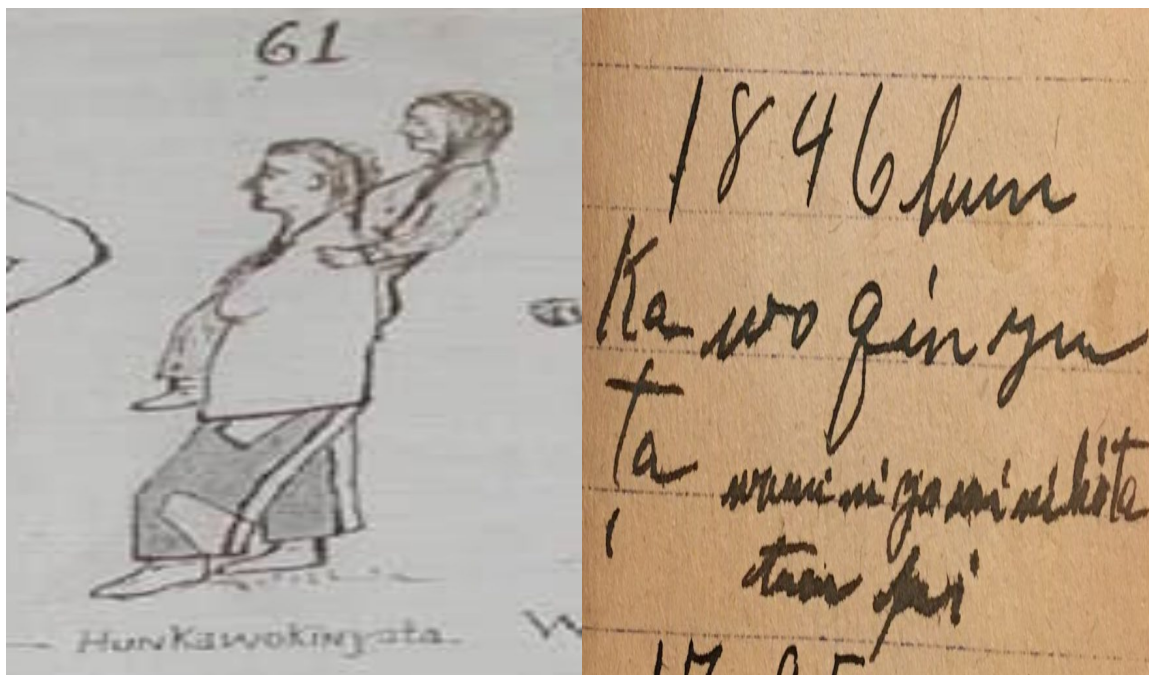 61
HunKawokinyata
W
1846 hun
Ka wo qin yu
ta
tun pi